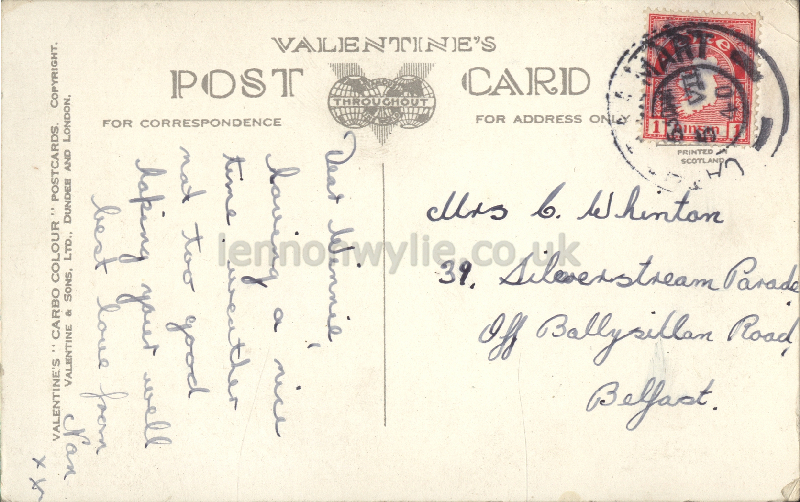 VALENTINE'S
POST CARD
THROUGHOUT
FOR CORRESPONDENCE
FOR ADDRESS ONL
PRINTED
SCOTLAND
VALENTINE'S "CARBO COLOUR" POSTCARDS. COPYRIGHT.
VALENTINE & SONS, LTD., DUNDEE AND LONDON.
Dear Winnie,
having a nice
time weather
not too good
hoping your well
best love from
Nan
x x
Mrs C. Whinton
39, Silverstream Parade
Off Ballysillan Road,
Belfast.
lennonwylie.co.uk